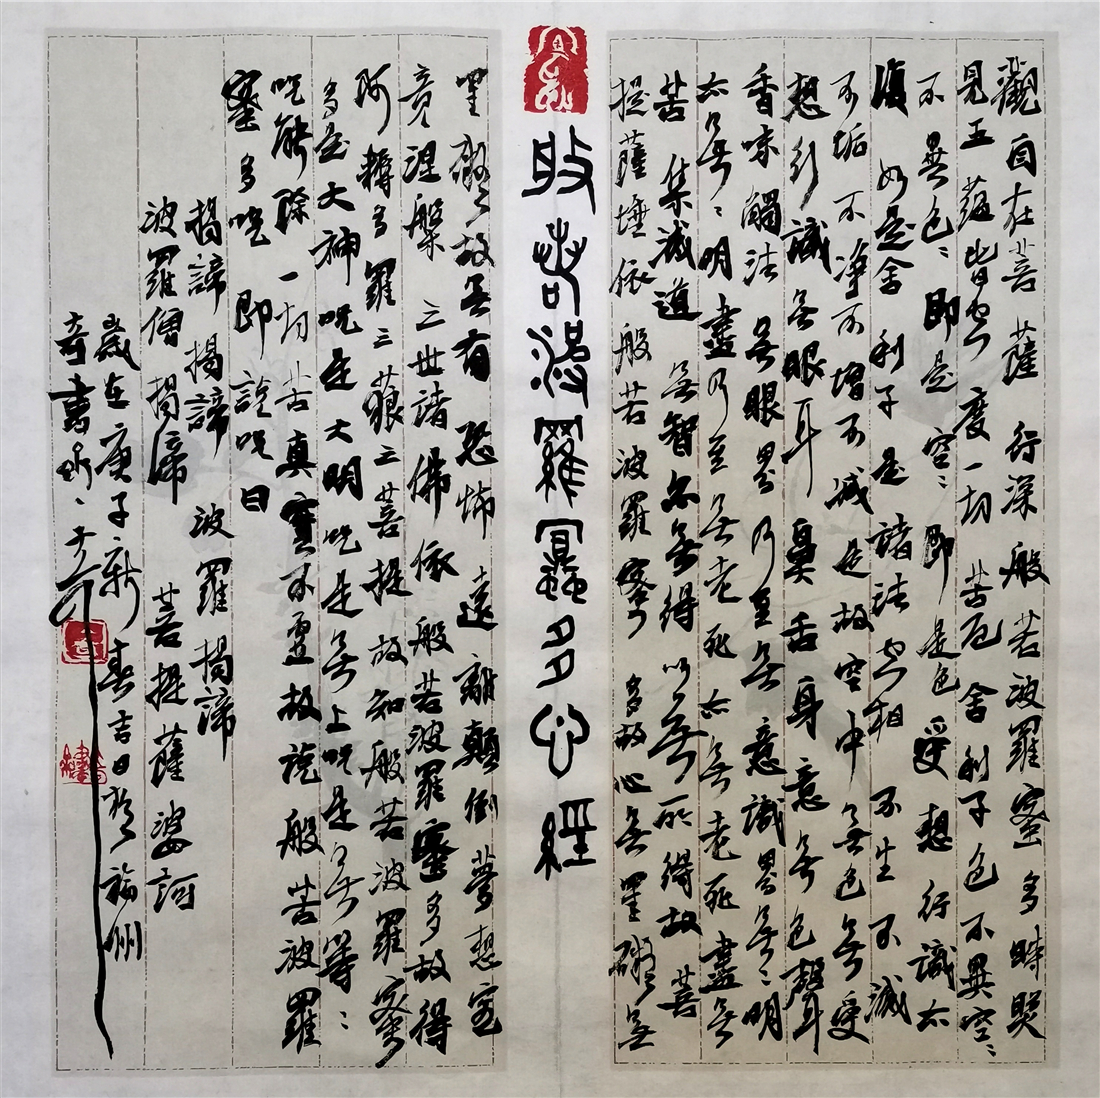 觀自在菩薩行深般若波羅蜜多時照
見五蘊皆空度一切苦厄舍利子色不異空〻
不異色〻即是空〻即是色受想行識亦
復如是舍利子是諸法空相不生不滅
不垢不净不增不減是故空中無色無受
想行識無眼耳鼻舌身意無色聲
香味觸法無眼界乃至無意識界無〻明
亦無〻明盡乃至無老死亦無老死盡無
苦集滅道無智亦無得以無所得故菩
提薩埵依般若波羅蜜多故心無罣礙無
般若波羅蜜多心經
罣礙故無有恐怖遠離顛倒夢想究
竟涅槃三世諸佛依般若波羅蜜多故得
阿耨多羅三藐三菩提故知般若波羅蜜
多是大神咒是大明咒是無上咒是無等〻
咒能除一切苦真實不虛故說般若波羅
蜜多咒即說咒曰
揭諦揭諦波羅揭諦
波羅僧揭諦菩提薩婆訶
歲在庚子新春吉日於福州
奇書